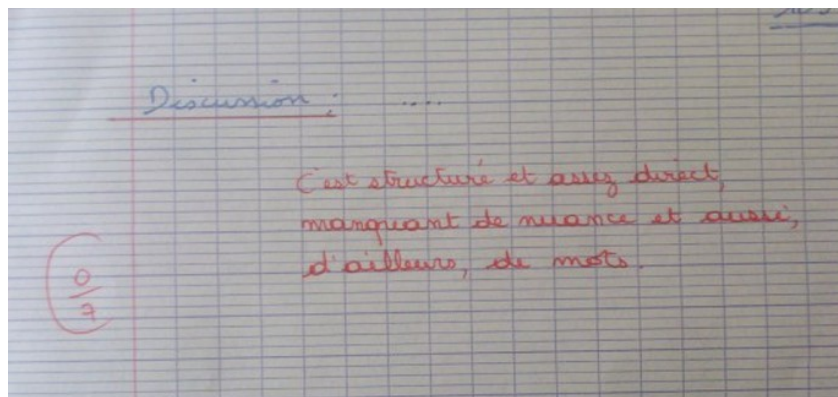 Discussion : ....
C'est structuré et assez direct,
manquant de nuance et aussi,
d'ailleurs, de mots.
0
7